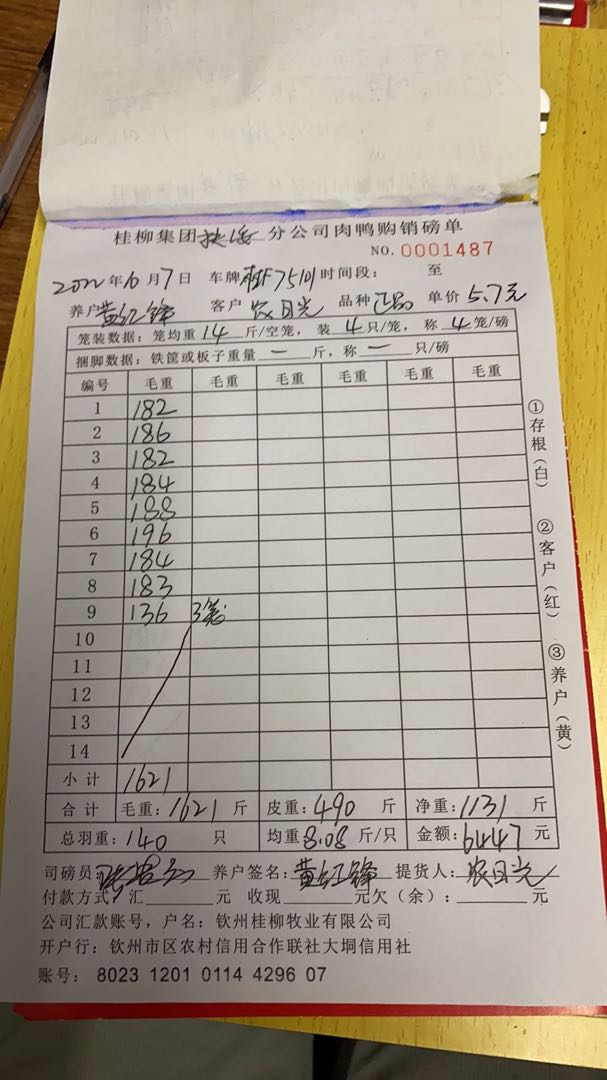 桂柳集团扶绥分公司肉鸭购销磅单
NO. 0001487
2022年6月7日 车牌桂F75101时间段： 至
养户黄红锋 客户农日光 品种正品 单价5.7元
笼装数据：笼均重14斤/空笼，装4只/笼，称4笼/磅
捆脚数据：铁筐或板子重量一斤，称一只/磅
编号 毛重 毛重 毛重 毛重 毛重 毛重
1 182
2 186
3 182
4 184
5 188
6 196
7 184
8 183
9 136 3笼
10
11
12
13
14
小计 1621
合计 毛重：1621斤 皮重：490斤 净重：1131斤
总羽重：140只 均重8.08斤/只 金额：6447元
司磅员： 养户签名：黄红锋 提货人：农日光
付款方式：汇 元 收现 元欠（余）： 元
公司汇款账号，户名：钦州桂柳牧业有限公司
开户行：钦州市区农村信用合作联社大垌信用社
账号：8023 1201 0114 4296 07
①存根（白）
②客户（红）
③养户（黄）